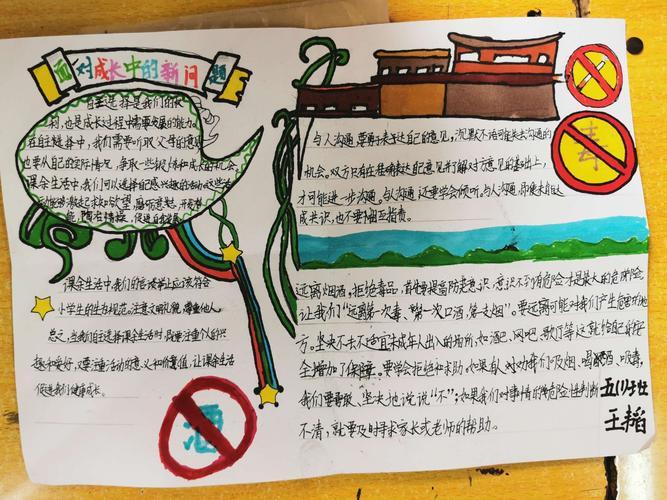 面对成长中的新问题
自主选择是我们的权
利，也是成长过程中需要发展的能力。
在自主选择中，我们需要听取父母的意见
也要从自己的实际情况，争取一些锻炼和成长的机会，
课余生活中，我们可以选择自己感兴趣的活动，这些活
动能够激起求知欲望，磨砺意志，开发潜
能，陶冶情操，促进自我发展
课余生活中，我们的言谈举止应该符合
小学生的生活规范。注意文明礼貌，尊重他人。
总之，当我们自主选择课余生活时，既要注重个人的兴
趣和爱好，又要注重活动的意义和价值，让课余生活
促进我们健康成长。
酒
毒
与人沟通，要勇于表达自己的意见，沉默不语可能失去沟通的
机会。双方只有在准确表达自己意见并了解对方意见的基础上，
才可能进一步沟通。与人沟通还要学会倾听。与人沟通，即使未能达
成共识，也不要相互指责。
远离烟酒，拒绝毒品，首先要提高防患意识，意识不到有危险才是最大的危险
让我们“远离第一次毒、第一次口酒、第一支烟”。要远离可能对我们产生危害的地
方。坚决不去不适宜未成年人出入的场所，如酒吧、网吧、歌厅等这就给自己的安
全增加了保障。要学会拒绝和求助。如果有人对劝我们吸烟、喝酒、吸毒，
我们要勇敢、坚决地说说“不”；如果我们对事情的危险性判断
不清，就要及时寻求家长或老师的帮助。
五(1)班
王韬